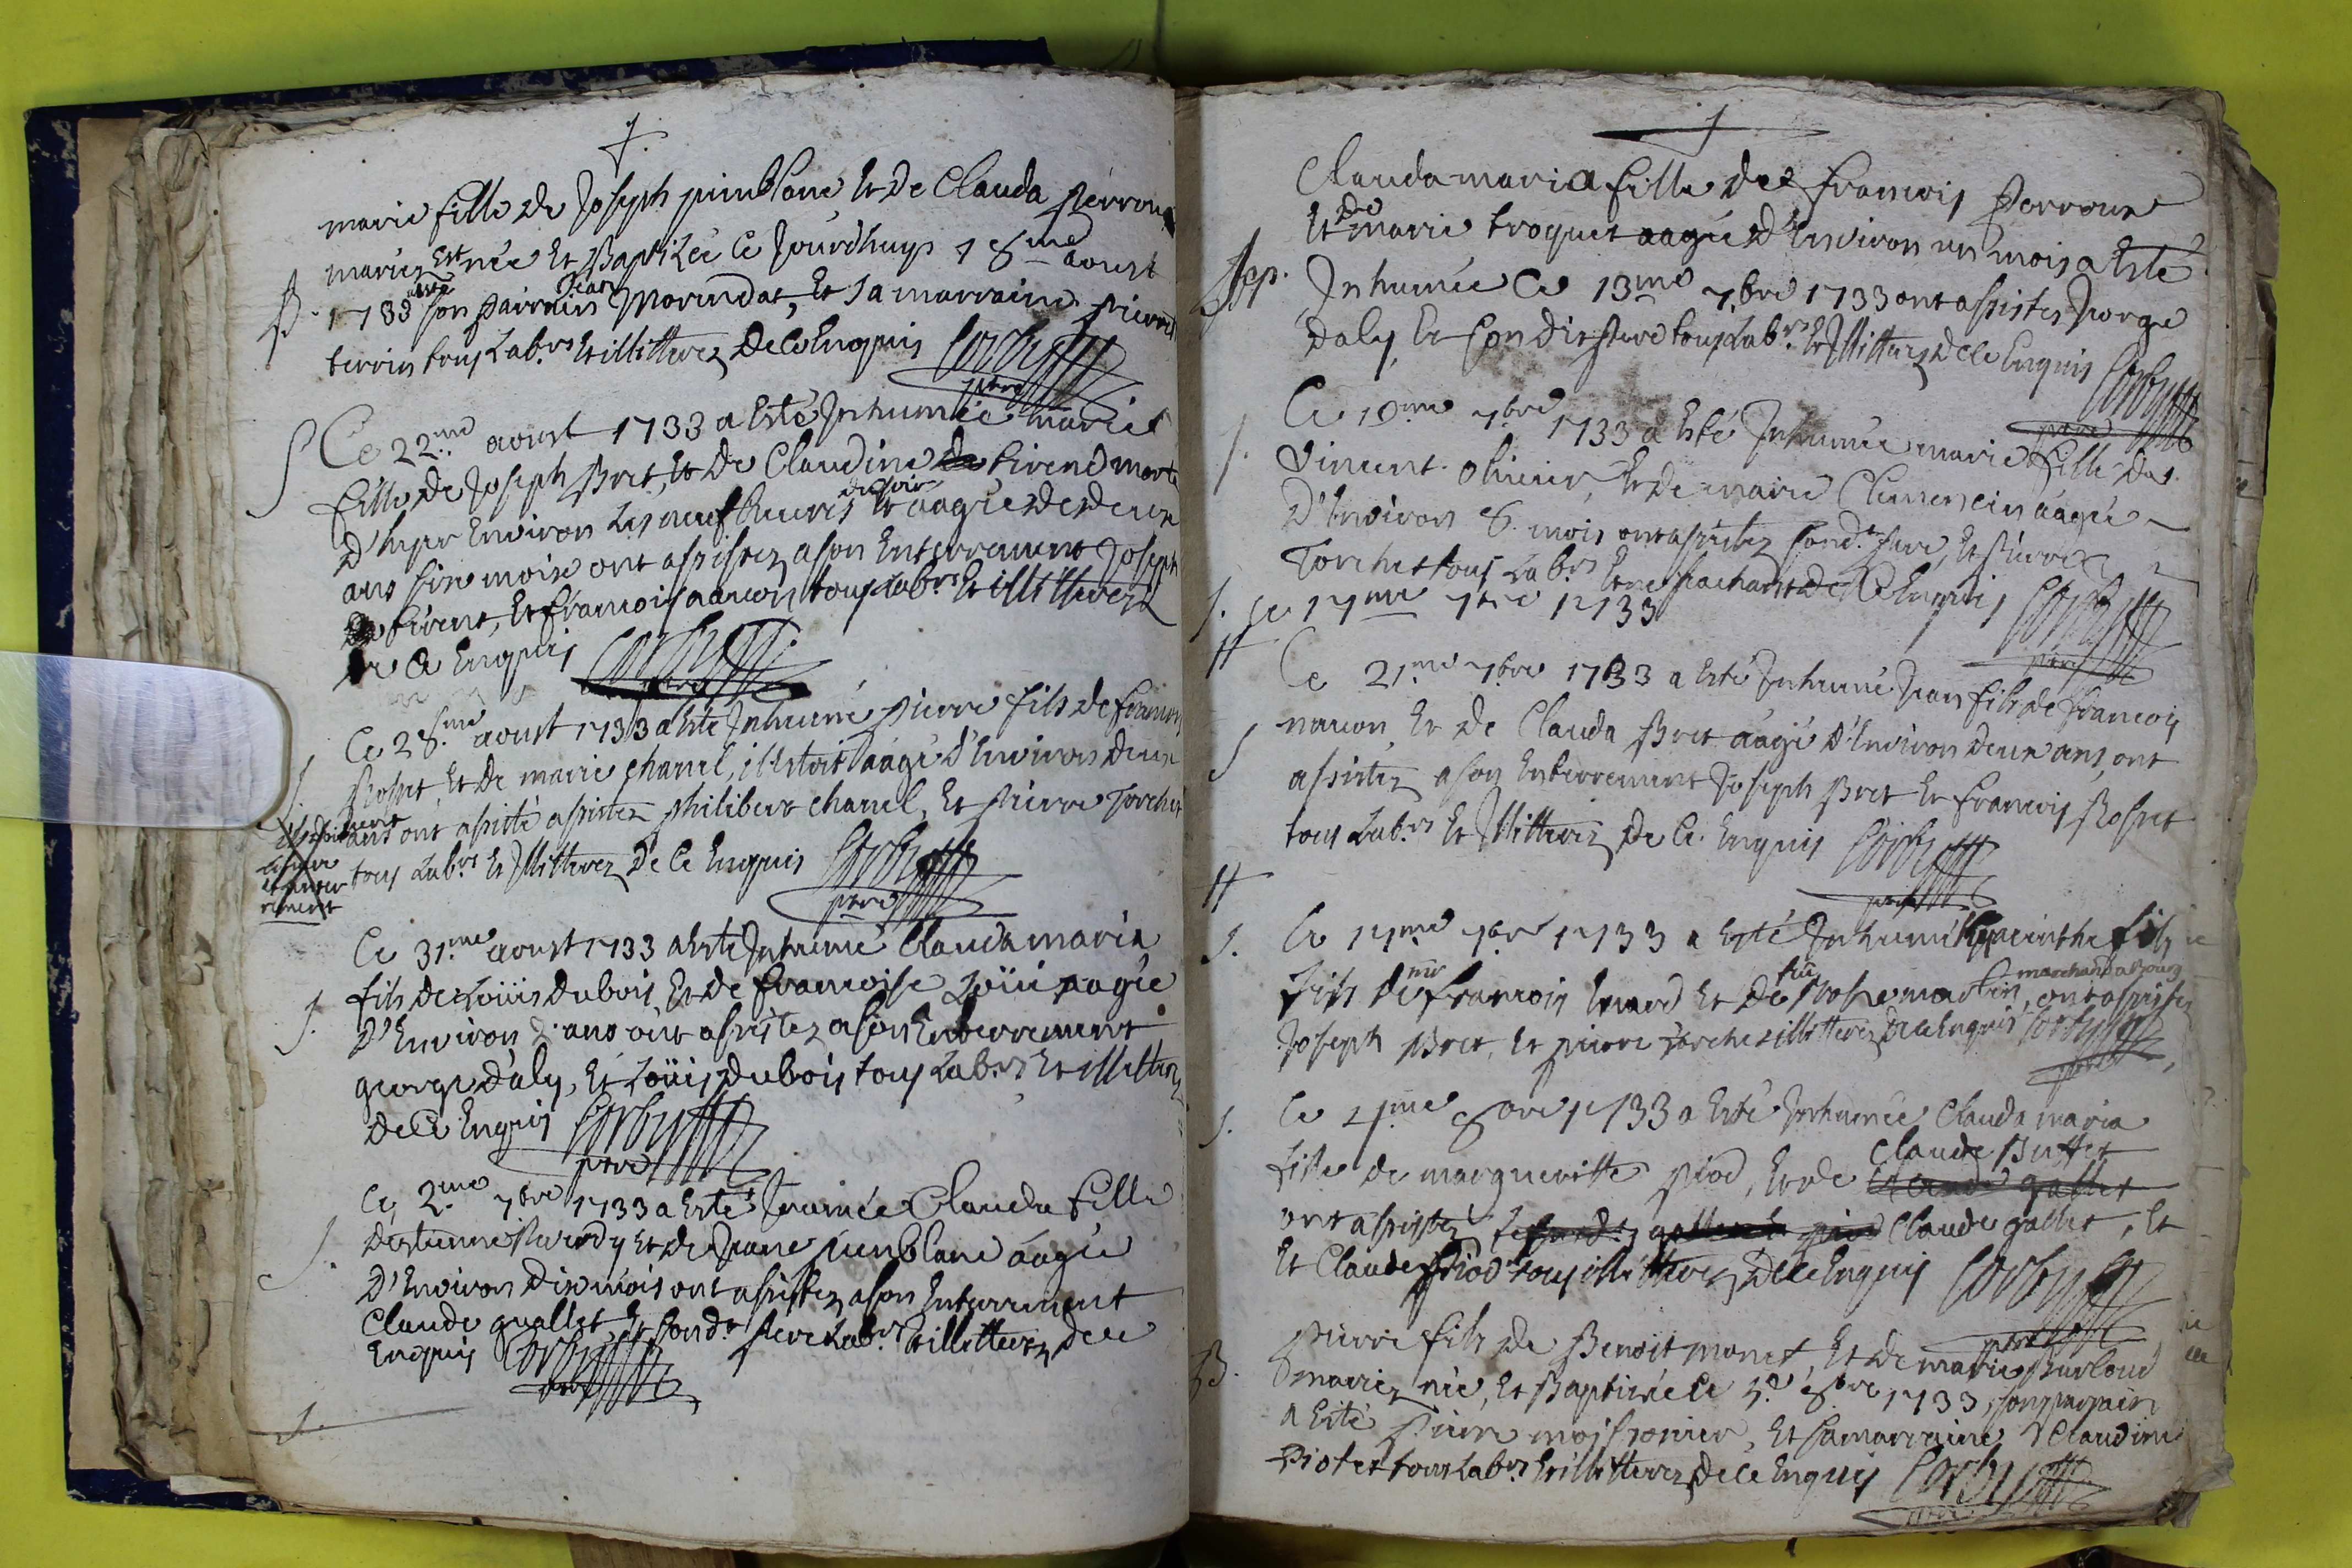 marie fille de Joseph pinblanc Et de Clauda perroux
mariez Est née Et Baptizée Ce Jourdhuy 18me aoust
B. 1733 son parrain a este Jean Morindat, Et sa marraine pierre
terrin tous Labrs Et illitterez De ce Enquis Corby
ptre
S Ce 22me aoust 1733 a Esté Inhumée marie
fille de Joseph Bret, Et De Claudine tirend morte
D'hyer Environ Les neuf heures du soir Et aagée de deux
ans six mois ont assistez a son Enterrement Joseph
tirent, Et francois nacon tous Labrs Et illitterez
De Ce Enquis Corby
ptre
Ce 28me aoust 1733 a Esté Inhumé pierre fils de francois
S. Rosset, Et De marie chanel, il Estoit aagé d'Environ deux
ans ont assisté assistez philibert chanel, Et pierre Torchet
tous Labrs Et Illitterez De Ce Enquis Corby
ptre
Ce 31me aoust 1733 a Esté Inhumé Clauda maria
S. fils de Loüis dubois Et de francoise Loüi aagée
D'Environ 2. ans ont assistez a son Enterrement
george daly, Et Loüis Dubois tous Labrs Et illitterez
De Ce Enquis Corby
ptre
Ce 2me 7bre 1733 a Esté Inumée Clauda fille
S. D'estienne Et de Jeane pinblanc aagée
D'Environ Dix mois ont assistez a son Enterrement
Claude guallet Et sond. pere Labrs Et illitterez De ce
Enquis Corby
ptre
S.
Clauda maria fille de francois perroux
Et de marie troquet aagée d'Environ un mois a Esté
Sep. Inhumée Ce 13me 7bre 1733 ont assistez Jorge
daly, Et son dit pere tous Labrs Et Illitterez De ce Enquis Corby
ptre
Ce 10me 7bre 1733 a Esté Inhumée marie fille de
S. Vincent olivier, Et de marie Clemencin aagée
D'Environ 8. mois ont assistez sond. pere, Et pierre
Torchet tous Labrs Et ne sachant De Ce Enquis Corby
S. ce 17me 7bre 1733
ptre
Ce 21me 7bre 1733 a Esté Inhumé Jean fils de francois
nacon Et de Clauda Bret aagé D'Environ deux ans, ont
S assistez a son Enterrement Joseph Bret Et francois Rosset
tous Labrs Et Illitterez De Ce Enquis Corby
ptre
S. Ce 17me 7bre 1733 a Esté Inhumé Hyacinthe fils
fils de mr francois Et De Rose martin, marchand a Bourg ont assistez
Joseph Bret, Et pierre torchet illitterez De ce Enquis Corby
ptre
S. Ce 4me 8bre 1733 a Esté Inhumée Clauda maria
fille de margueritte piod, Et de Claude Buffet
ont assistez Claude gallet, Et
Et Claude piod tous illitterez De ce Enquis Corby
ptre
pierre fils de Benoit monet, Et De marie Burloud
B. mariez né, Et Baptizé Ce 5e 8bre 1733, son parrain
a Esté pierre moissonier, Et sa marraine Claudine
piotet tous Labrs Et illitterez De ce Enquis Corby
ptre